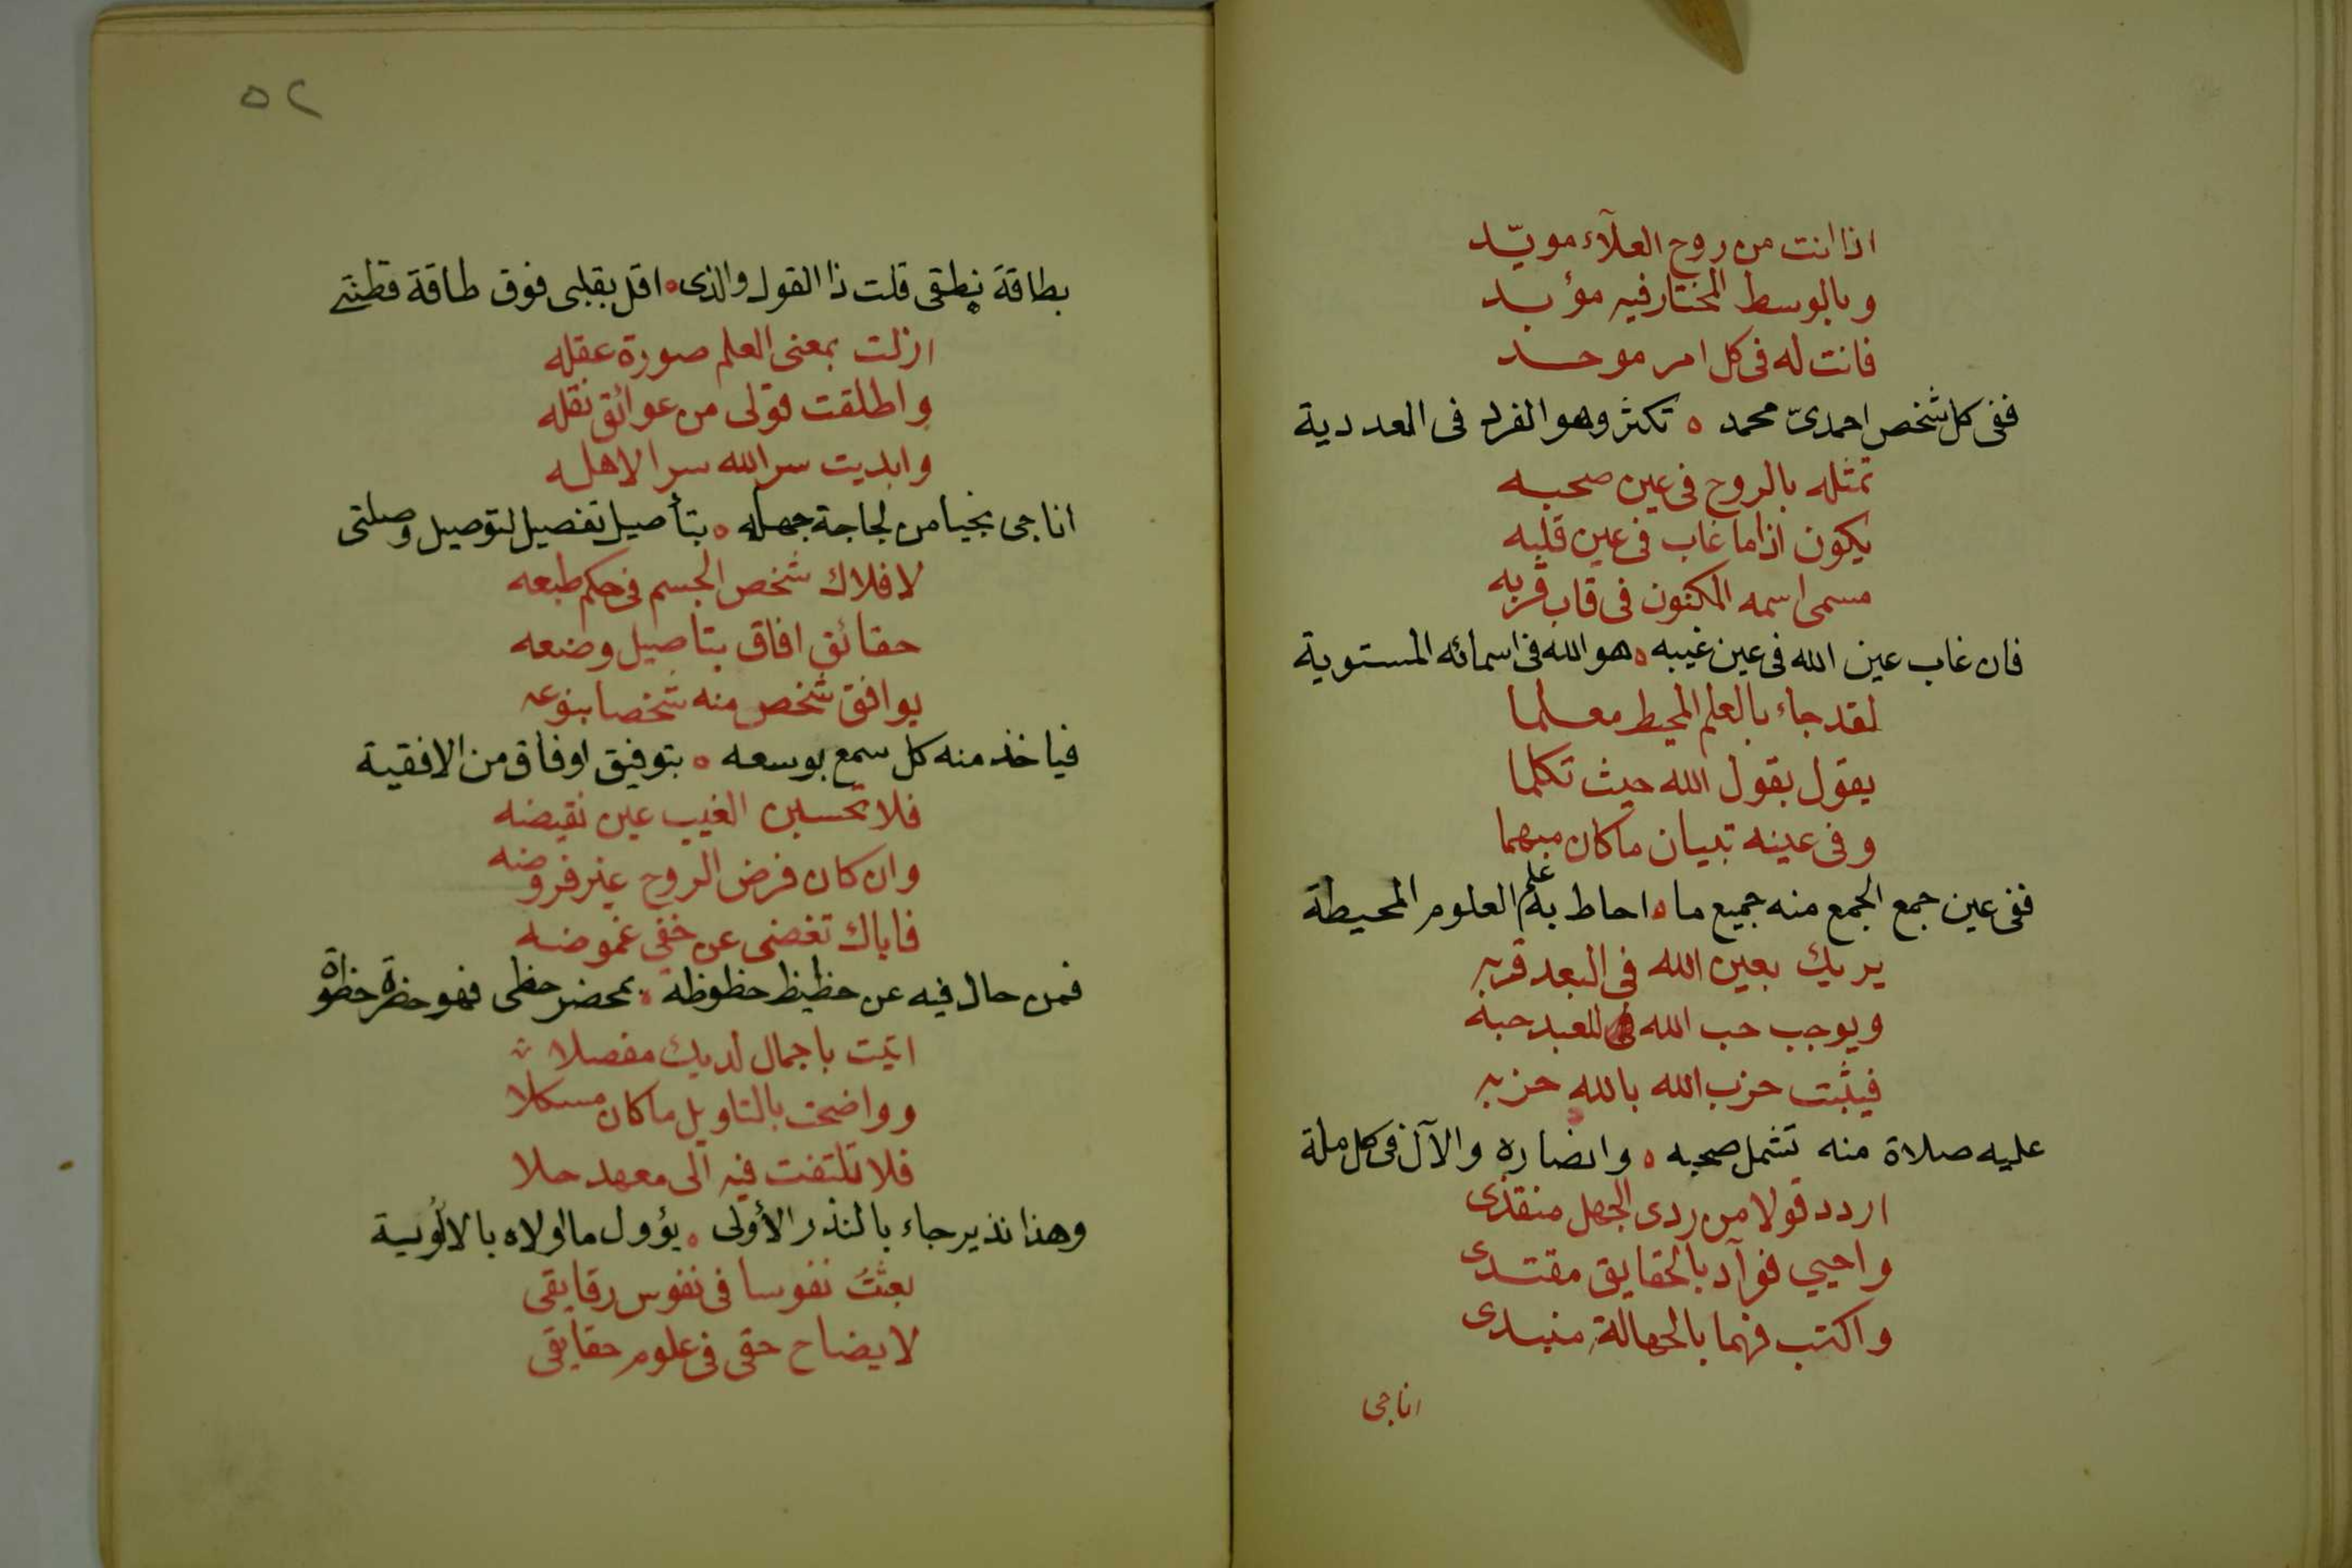 اذا انت من روح العلآء مويّد
وبالوسط المختار فيه مؤبد
فانت له فى كل امر موحد
ففى كل شخص احمدىّ محمد ه تكثر وهو الفرد فى العددية
تمثله بالروح فى عين صحبه
يكون اذا ما غاب فى عين قلبه
مسمى اسمه المكنون فى قاب قربه
فان غاب عين الله فى عين غيبه ه هو الله فى اسمائه المستوية
لقد جاء بالعلم المحيط معلما
يقول بقول الله حيث تكلما
وفى عينه تبيان ما كان مبهما
ففى عين جمع الجمع منه جميع ما ه احاط به علم العلوم المحيطة
يريك بعين الله فى البعد قربه
ويوجب حب الله للعبد حبه
فيثبت حزب الله بالله حزبه
عليه صلاة منه تشمل صحبه ه وانصاره والآل فى كل ملة
اردد قولا من ردى الجهل منقذى
واحيي فوآد بالحقايق مقتدى
واكتب فهما بالجهالة
اناجى
٥٢
بطاقة نطقى قلت ذا القول والذى ه اقل بقلبى فوق طاقة فطنتى
ازلت بمعنى العلم صورة عقله
واطلقت قولى من عوائق نقله
وابديت سر الله سرا لاهله
اناجى نجيا من لجاجة جهله ه بتأصيل تفصيل لتوصيل وصلتى
لافلاك شخص الجسم فى حكم طبعه
حقائق افاق بتاصيل وضعه
يوافق شخص منه شخصا بنوعه
فياخذ منه كل سمع بوسعه ه بتوفيق اوفاق من الافقية
فلا تحسبن الغيب عين نقيضه
وان كان فرض الروح غير فروضه
فاياك تغضى عن خفى غموضه
فمن حال فيه عن حظيظ حظوظه ه بمحضر حظى فهو حضرة حظوة
اتيت باجمال لديك مفصلا
وواضحت بالتاويل ما كان مسكلا
فلا تلتفت فيه الى معهد حلا
وهذا نذير جاء بالنذر الأولى ه يؤول ما اولاه بالالوُيية
بعثتُ نفوسا فى نفوس رقايقى
لايضاح حقى فى علوم حقايقى